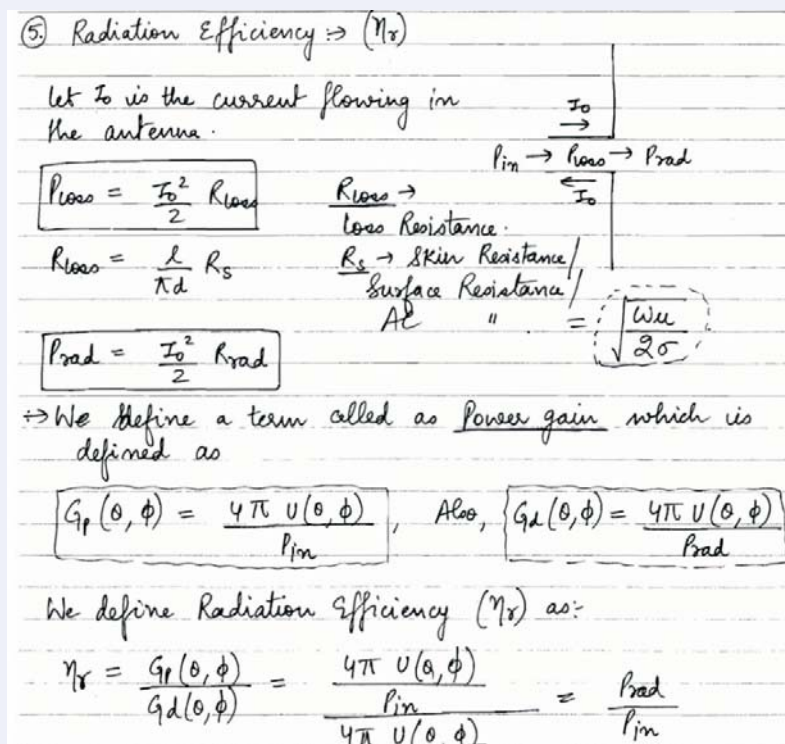 ⑤ Radiation Efficiency :→ (ηr)
let I₀ is the current flowing in
the antenna.
I₀
→
Pin → Ploss → Prad
←
I₀
Ploss = I₀²/2 Rloss
Rloss →
Loss Resistance.
Rloss = l/πd Rs
Rs → Skin Resistance/
Surface Resistance/
AC " = √(ωμ/2σ)
Prad = I₀²/2 Rrad
∻→ We define a term called as Power gain which is
defined as
Gp(θ, φ) = 4π U(θ, φ)/Pin , Also, Gd(θ, φ) = 4π U(θ, φ)/Prad
We define Radiation Efficiency (ηr) as:-
ηr = Gp(θ, φ)/Gd(θ, φ) = 4π U(θ, φ)/Pin / 4π U(θ, φ) = Prad/Pin